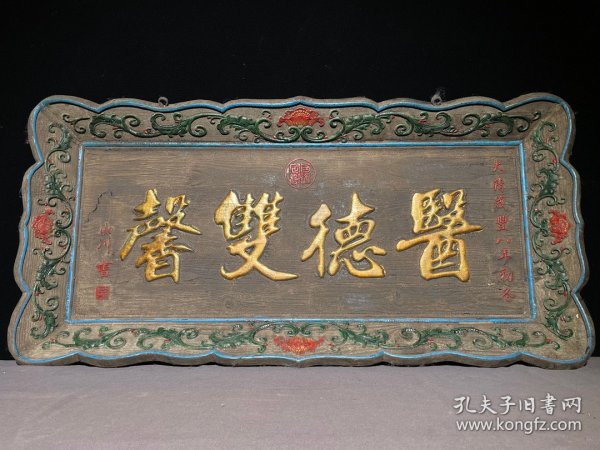 醫德雙馨
大清咸豐八年初冬
孔夫子旧书网
www.kongfz.com